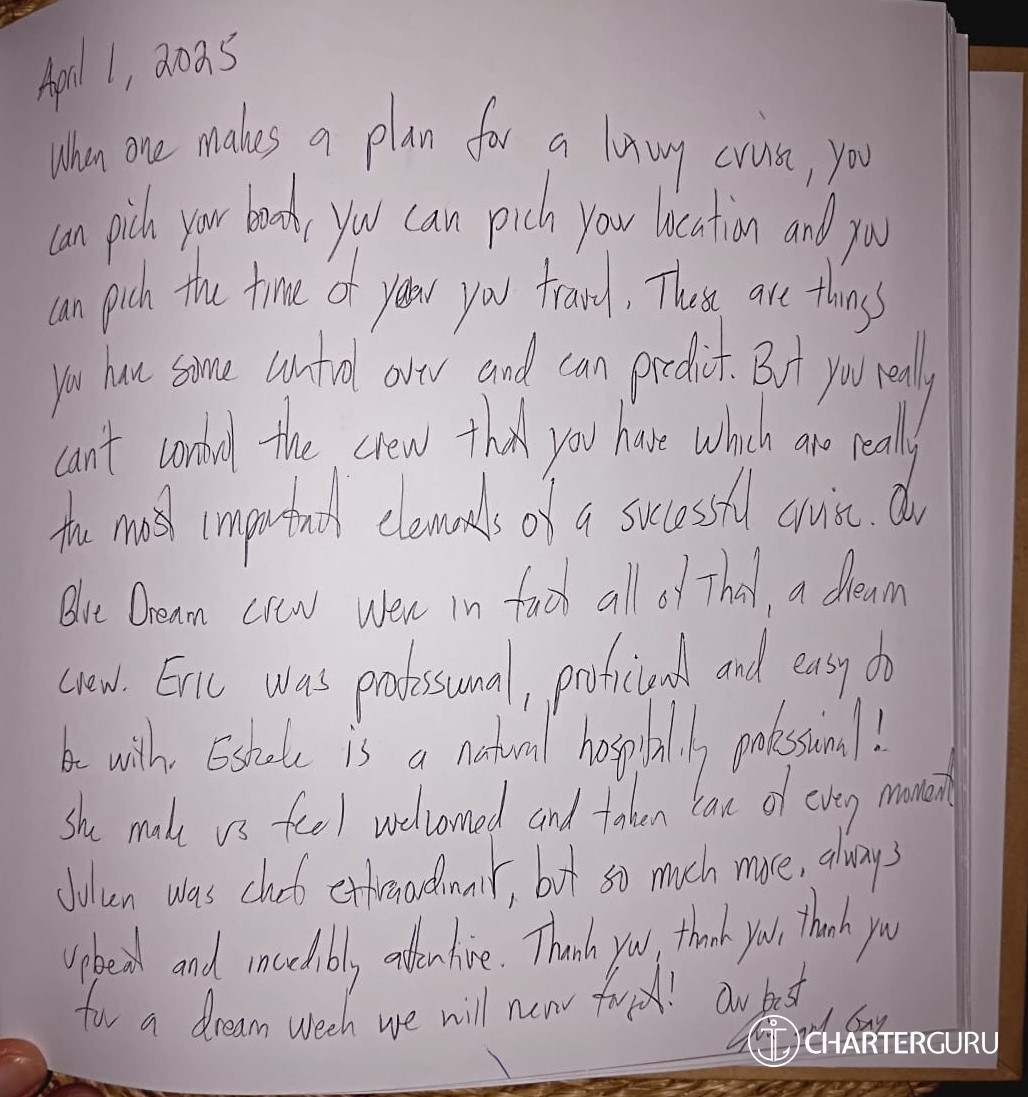 April 1, 2025
When one makes a plan for a luxury cruise, you
can pick your boat, you can pick your location and you
can pick the time of year you travel. These are things
you have some control over and can predict. But you really
can't control the crew that you have which are really
the most important elements of a successful cruise. Our
Blue Dream crew were in fact all of that, a dream
crew. Eric was professional, proficient and easy to
be with. Estelle is a natural hospitality professional!
She made us feel welcomed and taken care of every moment
Julien was chef extraordinair, but so much more, always
upbeat and incredibly attentive. Thank you, thank you, thank you
for a dream week we will never forget! Our best
and Gay
CHARTERGURU